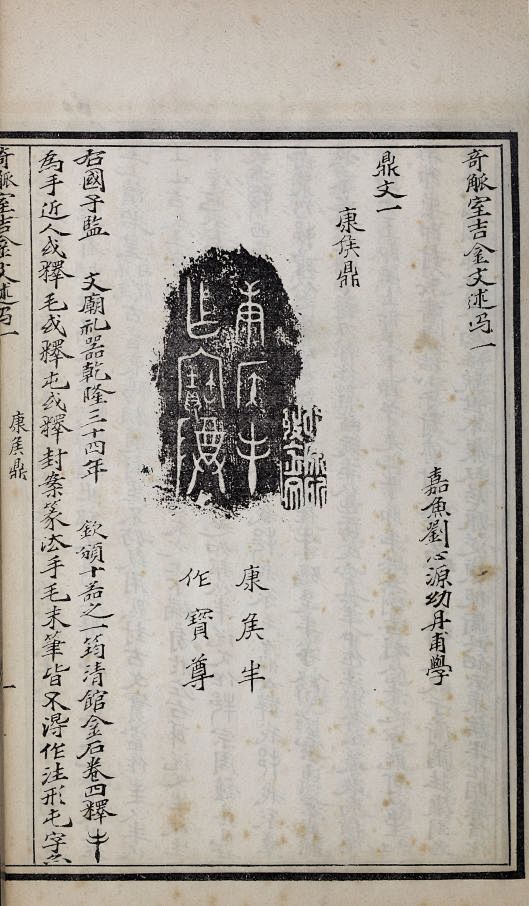 奇觚室吉金文述弓一
嘉魚劉心源幼丹甫學
鼎文一
康矦鼎
康矦丰
作寶尊
右國子監 文廟礼器乾隆三十四年 欽頒十器之一筠清館金石卷四釋
為手近人或釋毛或釋屯或釋封案篆法手毛末筆皆不得作注形屯字亦
奇觚室吉金文述弓一 康矦鼎 一